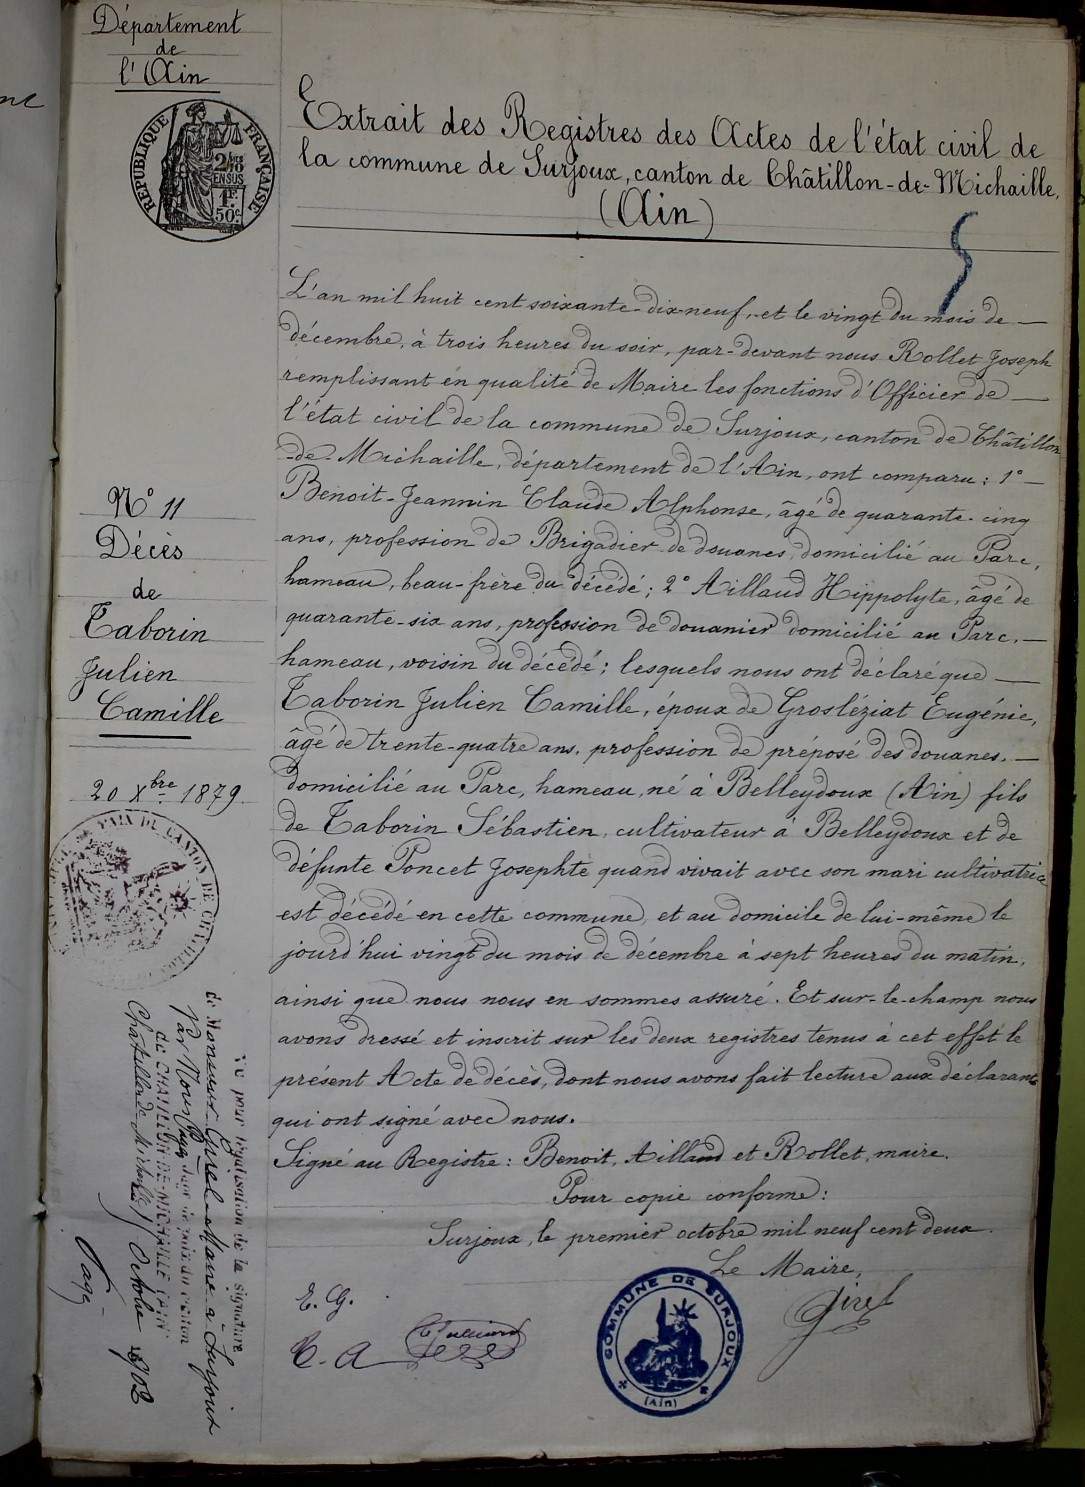 Département
de
l'Ain
RÉPUBLIQUE FRANÇAISE
2/10
EN SUS
1F.
50c.
Extrait des Registres des Actes de l'état civil de
la commune de Surjoux, canton de Châtillon-de-Michaille,
(Ain)
5
L'an mil huit cent soixante-dix-neuf, et le vingt du mois de —
décembre, à trois heures du soir, par-devant nous Rollet Joseph
remplissant en qualité de Maire les fonctions d'Officier de —
l'état civil de la commune de Surjoux, canton de Châtillon
-de-Michaille, département de l'Ain, ont comparu : 1° —
Benoit-Jeannin Claude Alphonse, âgé de quarante-cinq
ans, profession de Brigadier de douanes, domicilié au Parc,
hameau, beau-frère du décédé ; 2° Aillaud Hippolyte, âgé de
quarante-six ans, profession de douanier domicilié au Parc. —
hameau, voisin du décédé ; lesquels nous ont déclaré que —
Taborin Julien Camille, époux de Grosléziat Eugénie,
âgé de trente-quatre ans, profession de préposé des douanes. —
domicilié au Parc, hameau, né à Belleydoux (Ain) fils
de Taborin Sébastien, cultivateur à Belleydoux et de
défunte Poncet Josephte quand vivait avec son mari cultivatrice
est décédé en cette commune, et au domicile de lui-même le
jourd'hui vingt du mois de décembre à sept heures du matin,
ainsi que nous nous en sommes assuré. Et sur-le-champ nous
avons dressé et inscrit sur les deux registres tenus à cet effet le
présent Acte de décès, dont nous avons fait lecture aux déclarants
qui ont signé avec nous.
Signé au Registre : Benoit, Aillaud et Rollet, maire.
Pour copie conforme :
Surjoux, le premier octobre mil neuf cent deux.
Le Maire,
Giret
E. G.
C. A
COMMUNE DE SURJOUX
(Ain)
N° 11
Décès
de
Taborin
Julien
Camille
20 Xbre 1879.
PAIX DU CANTON DE
Vu pour légalisation de la signature
de Monsieur Giret Maire à Surjoux
par Nous Juge de paix du canton
de CHATILLON-DE-MICHAILLE (AIN)
Châtillon-de-Michaille, Octobre 1902